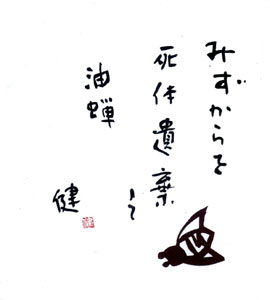 みずからを
死体遺棄
して
油蝉
健